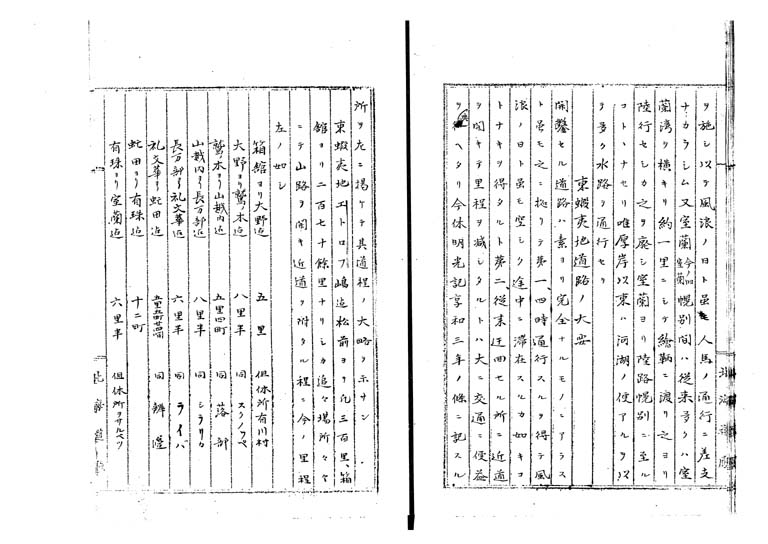 ヲ施シ以テ風浪ノ日ト虽モ人馬ノ通行ニ差支
ナカラシム又室蘭今ノ元室蘭幌別間ハ従来多クハ室
蘭湾ヲ横キリ約一里ニシテ絵鞆ニ渡リ之ヨリ
陸行セシカ之ヲ廃シ室蘭ヨリ陸路幌別ニ至ル
コトヽナセリ唯厚岸以東ハ河湖ノ便アルヲ以
テ多ク水路ヲ通行セリ
東蝦夷地道路ノ大要
開鑿セル道路ハ素ヨリ完全ナルモノニアラス
ト虽モ之ニ拠リテ第一、四時通行スルヲ得テ風
浪ノ日ト虽モ空シク途中ニ滞在スルカ如キコ
トナキヲ得タルト第二従来迂回セル所ニ近道
ヲ開キテ里程ヲ減シタルトハ大ニ交通ニ便益
ヲ与ヘタリ今休明光記享和三年ノ條ニ記スル
所ヲ左ニ掲ケテ其道程ノ大略ヲ示サン
東蝦夷地エトロフ嶋迄松前ヨリ凡三百里、箱
館ヨリ二百七十餘里ナリシカ追々場所々々
ニテ山路ヲ開キ近道ヲ附タル程ニ今ノ里程
左ノ如シ
箱館ヨリ大野迄 五里 但休所有川村
大野ヨリ鷲ノ木迄 八里半 同 スクノッペ
鷲木ヨリ山越内迄 五里四町 同 落部
山越内ヨリ長万部迄 八里半 同 シラリカ
長万部ヨリ礼文華迄 六里半 同 ライバ
礼文華ヨリ虻田迄 五里五町廿四間 同 辨邊
虻田ヨリ有珠迄 十二町
有珠ヨリ室蘭迄 六里半 但休所ヲサルベツ
北海道廳
北海道廳